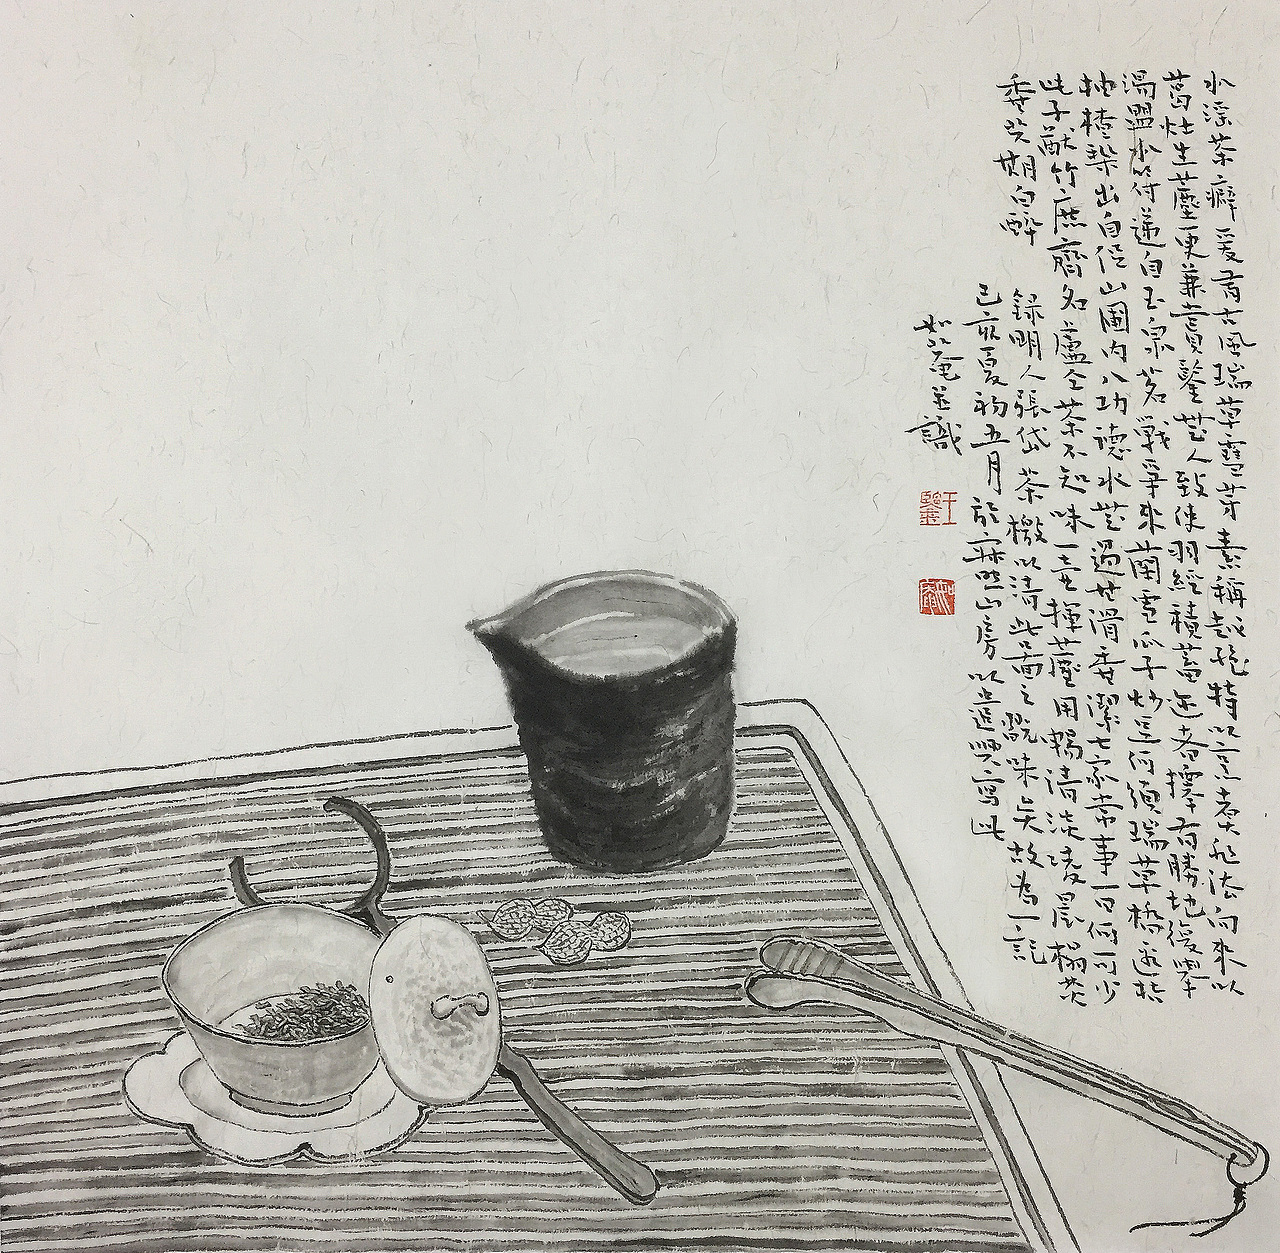 水淫茶癖爰有古風瑞草雪芽素稱越絕特以烹煮非法向來以
葛灶生塵更兼賞鑒無人致使羽經積蠹邇者擇有勝地復舉
湯盟水符遞自玉泉茗戰爭來蘭雪瓜子炒豆何須瑞草橋邊橘
柚楂梨出自仲山圃內八功德水無過甘滑香潔七家常事一日何可少
此子猷竹庶齊名盧仝茶不知味一壺揮麈用暢清談凌晨榻焚
香共期白醉
録明人張岱茶檄以清此味矣故為一記
己亥夏初五月於寂照山房以遣興寫此
如庵並識